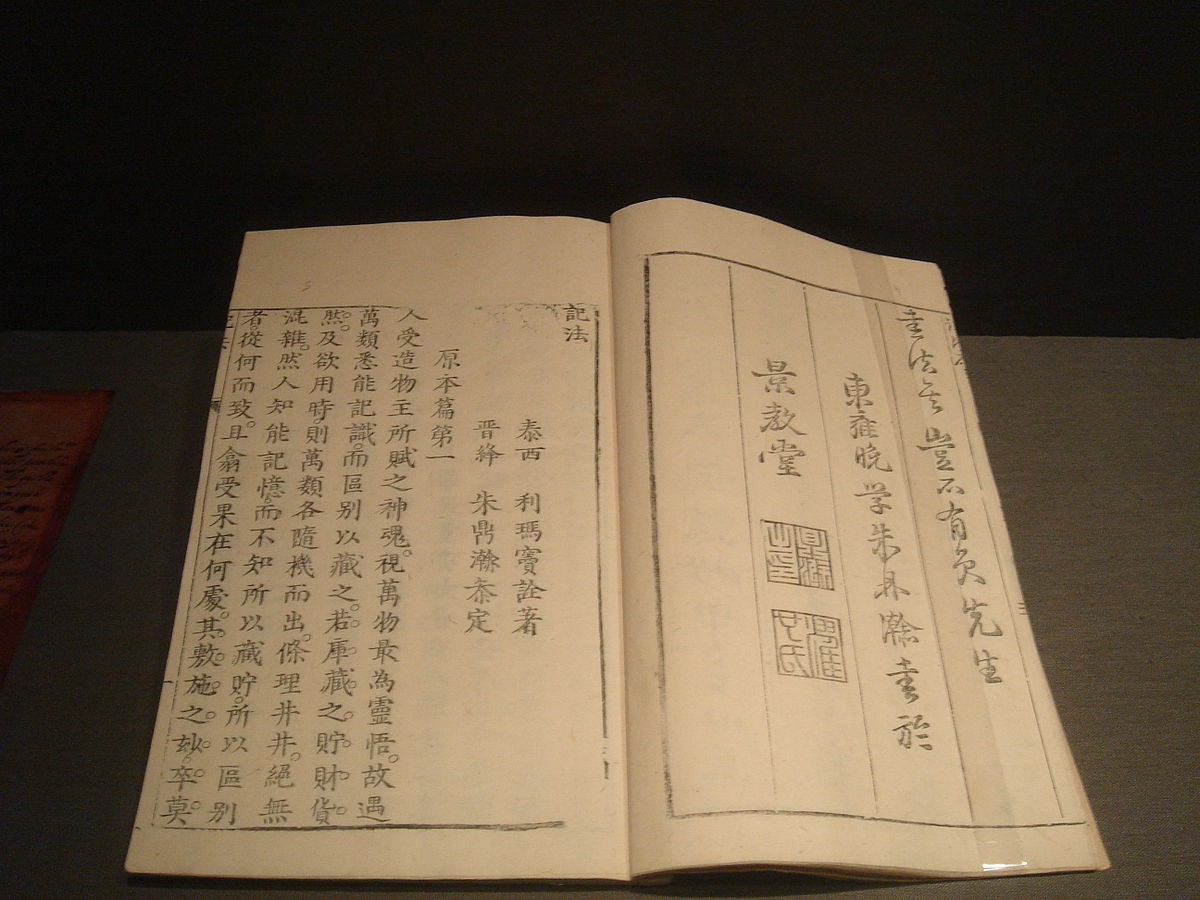 東雍晩学朱鼎瀚書於
景教堂
記法
泰西 利瑪竇詮著
晋絳 朱鼎瀚叅定
原本篇第一
人受造物主所賦之神魂。視萬物最為靈悟。故遇
萬類悉能記識。而區别以藏之。若庫藏之貯財貨
然。及欲用時。則萬類各隨機而出。條理井井。絕無
混雜。然人知能記憶。而不知所以藏貯。所以區别
者。從何而致。且翕受果在何處。其敷施之玅。卒莫